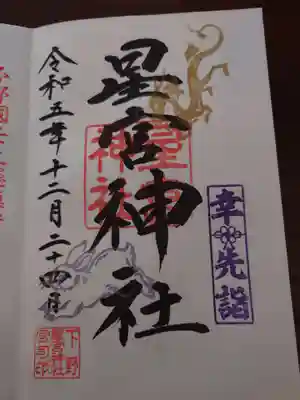 幸先詣
星宮神社
星宮
神社
令和五年十二月二十四日
下野
星宮神社